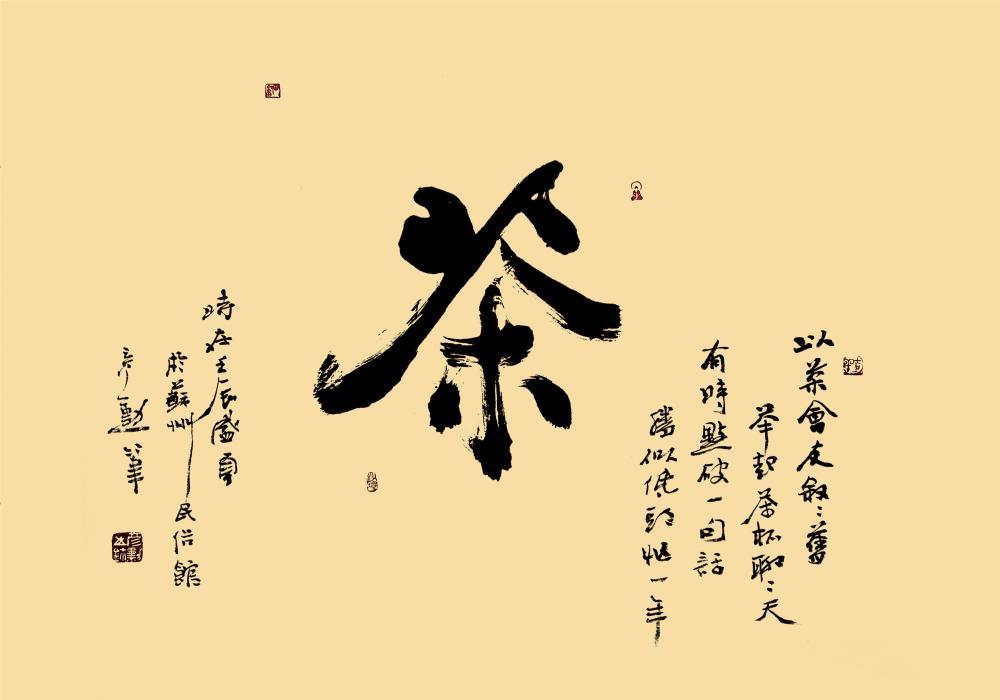 茶
以茶會友敘〻舊
举起茶杯聊〻天
有時點破一句話
勝似低頭忙一年
時在壬辰盛夏
於蘇州民俗館
彦勳筆